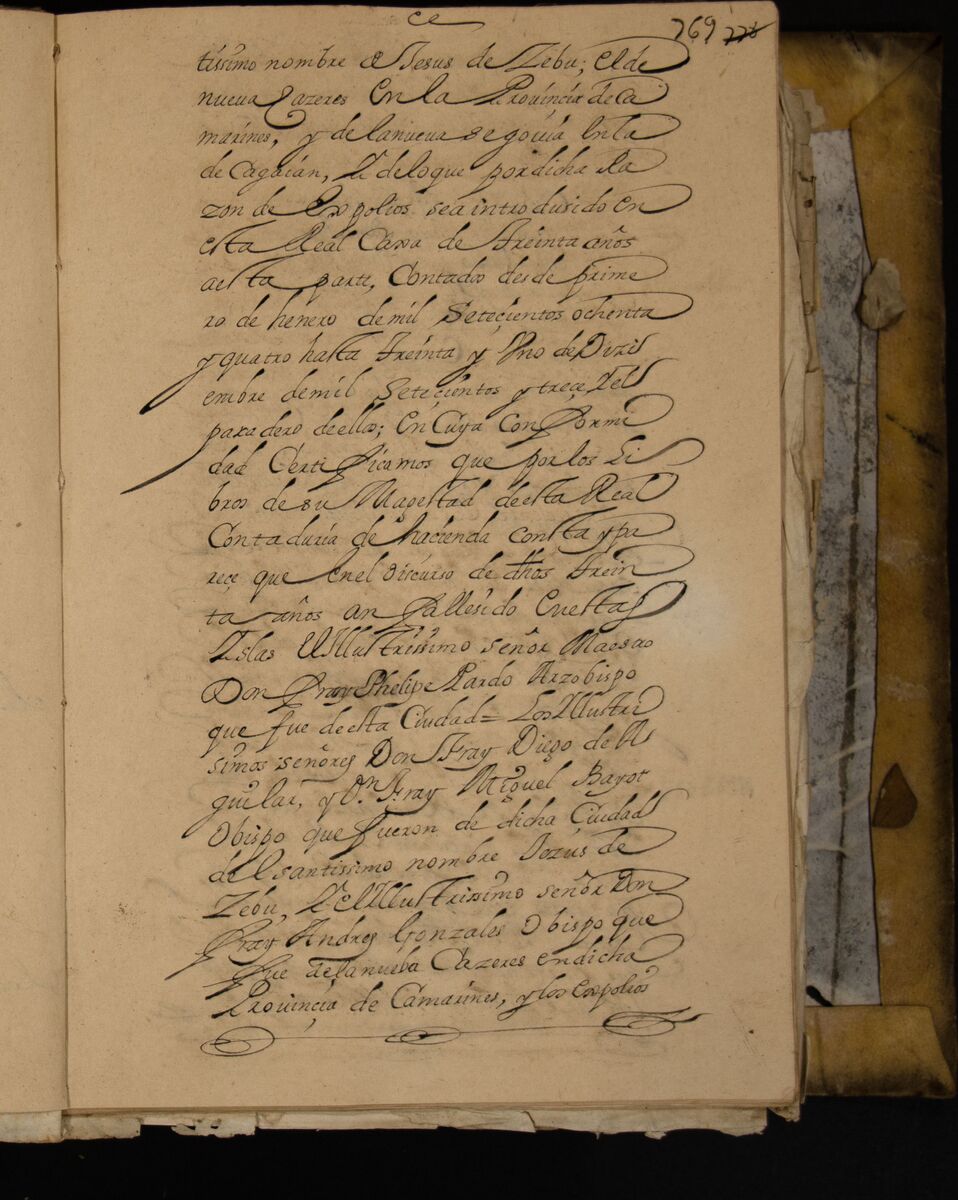 ce
769 778
tissimo nombre de Jesus de Zebu; el de
nueva Cazeres en la Provincia de Ca
marines, y de la nueva segovia en la
de Cagaian, Y de lo que por dicha Ra
zon de Expolios sea introdusido en
esta Real Caxa de treinta años
aesta parte, Contados desde prime
ro de henero de mil Setecientos ochenta
y quatro hasta treinta y Uno de Dizi
embre de mil Setecientos y trece, Y el
paradero de ellos; en Cuya Conformi
dad Certificamos que por los Li
bros de su Magestad de esta Real
Contaduria de hacienda consta y pa
reçe que en el discurso de dhos trein
ta años an fallesido en estas
Yslas el Illustrissimo señor Maestro
Don fray Phelipe Pardo Arzobispo
que fue de esta Ciudad= Los Illustri
simos señores Don fray Diego de A
guilar, y Dn. fray Miguel Bayot
Obispo que fueron de dicha Ciudad
del santissimo nombre Jezus de
Zebu, Y el Illustrissimo señor Don
fray Andres Gonzales Obispo que
fue de la nueba Cazeres en dicha
Provinçia de Camarines, y los expolios